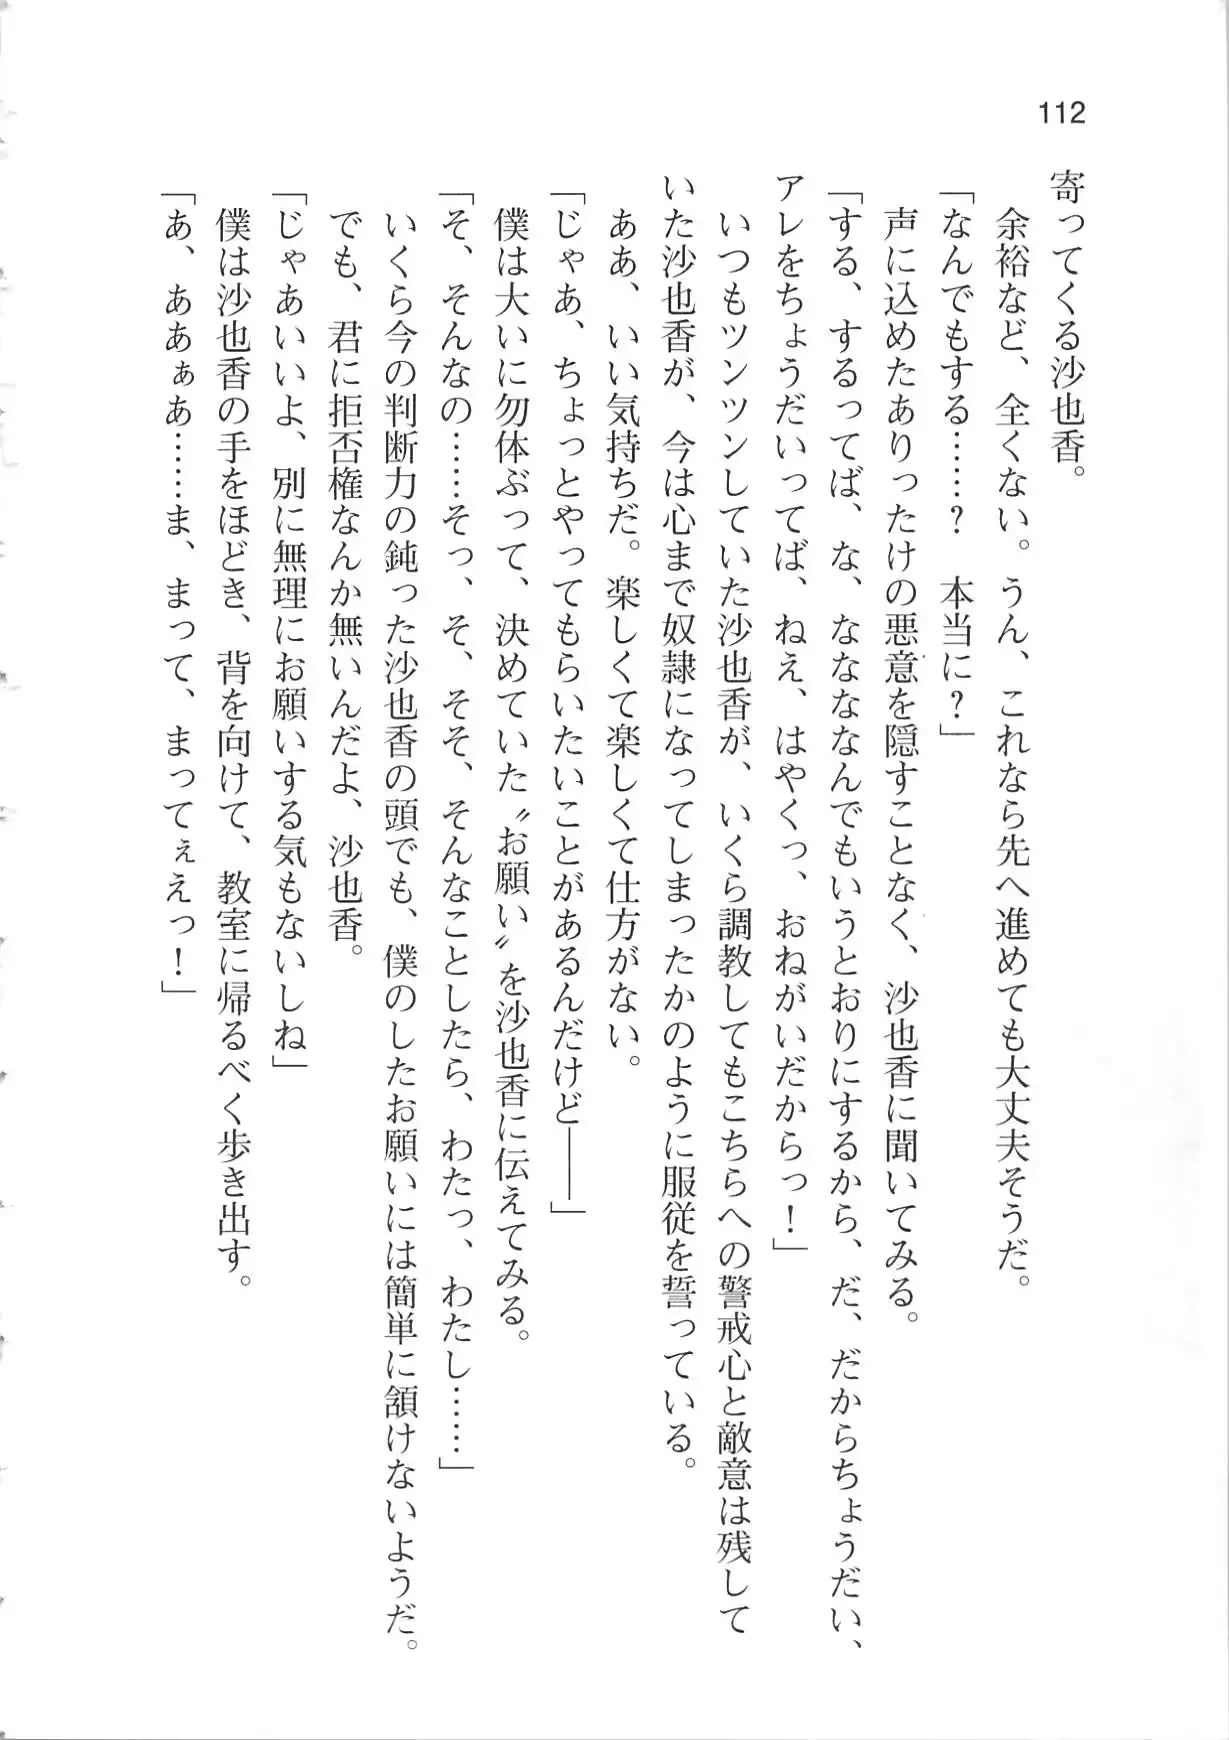 112
寄ってくる沙也香。
余裕など、全くない。うん、これなら先へ進めても大丈夫そうだ。
「なんでもする……？　本当に？」
声に込めたありったけの悪意を隠すことなく、沙也香に聞いてみる。
「する、するってば、な、なななんでもいうとおりにするから、だ、だからちょうだい、
アレをちょうだいってば、ねえ、はやくっ、おねがいだからっ！」
いつもツンツンしていた沙也香が、いくら調教してもこちらへの警戒心と敵意は残して
いた沙也香が、今は心まで奴隷になってしまったかのように服従を誓っている。
ああ、いい気持ちだ。楽しくて楽しくて仕方がない。
「じゃあ、ちょっとやってもらいたいことがあるんだけど――」
僕は大いに勿体ぶって、決めていた〝お願い〟を沙也香に伝えてみる。
「そ、そんなの……そっ、そ、そそ、そんなことしたら、わたっ、わたし……」
いくら今の判断力の鈍った沙也香の頭でも、僕のしたお願いには簡単に頷けないようだ。
でも、君に拒否権なんか無いんだよ、沙也香。
「じゃあいいよ、別に無理にお願いする気もないしね」
僕は沙也香の手をほどき、背を向けて、教室に帰るべく歩き出す。
「あ、ああぁあ……ま、まって、まってぇえっ！」